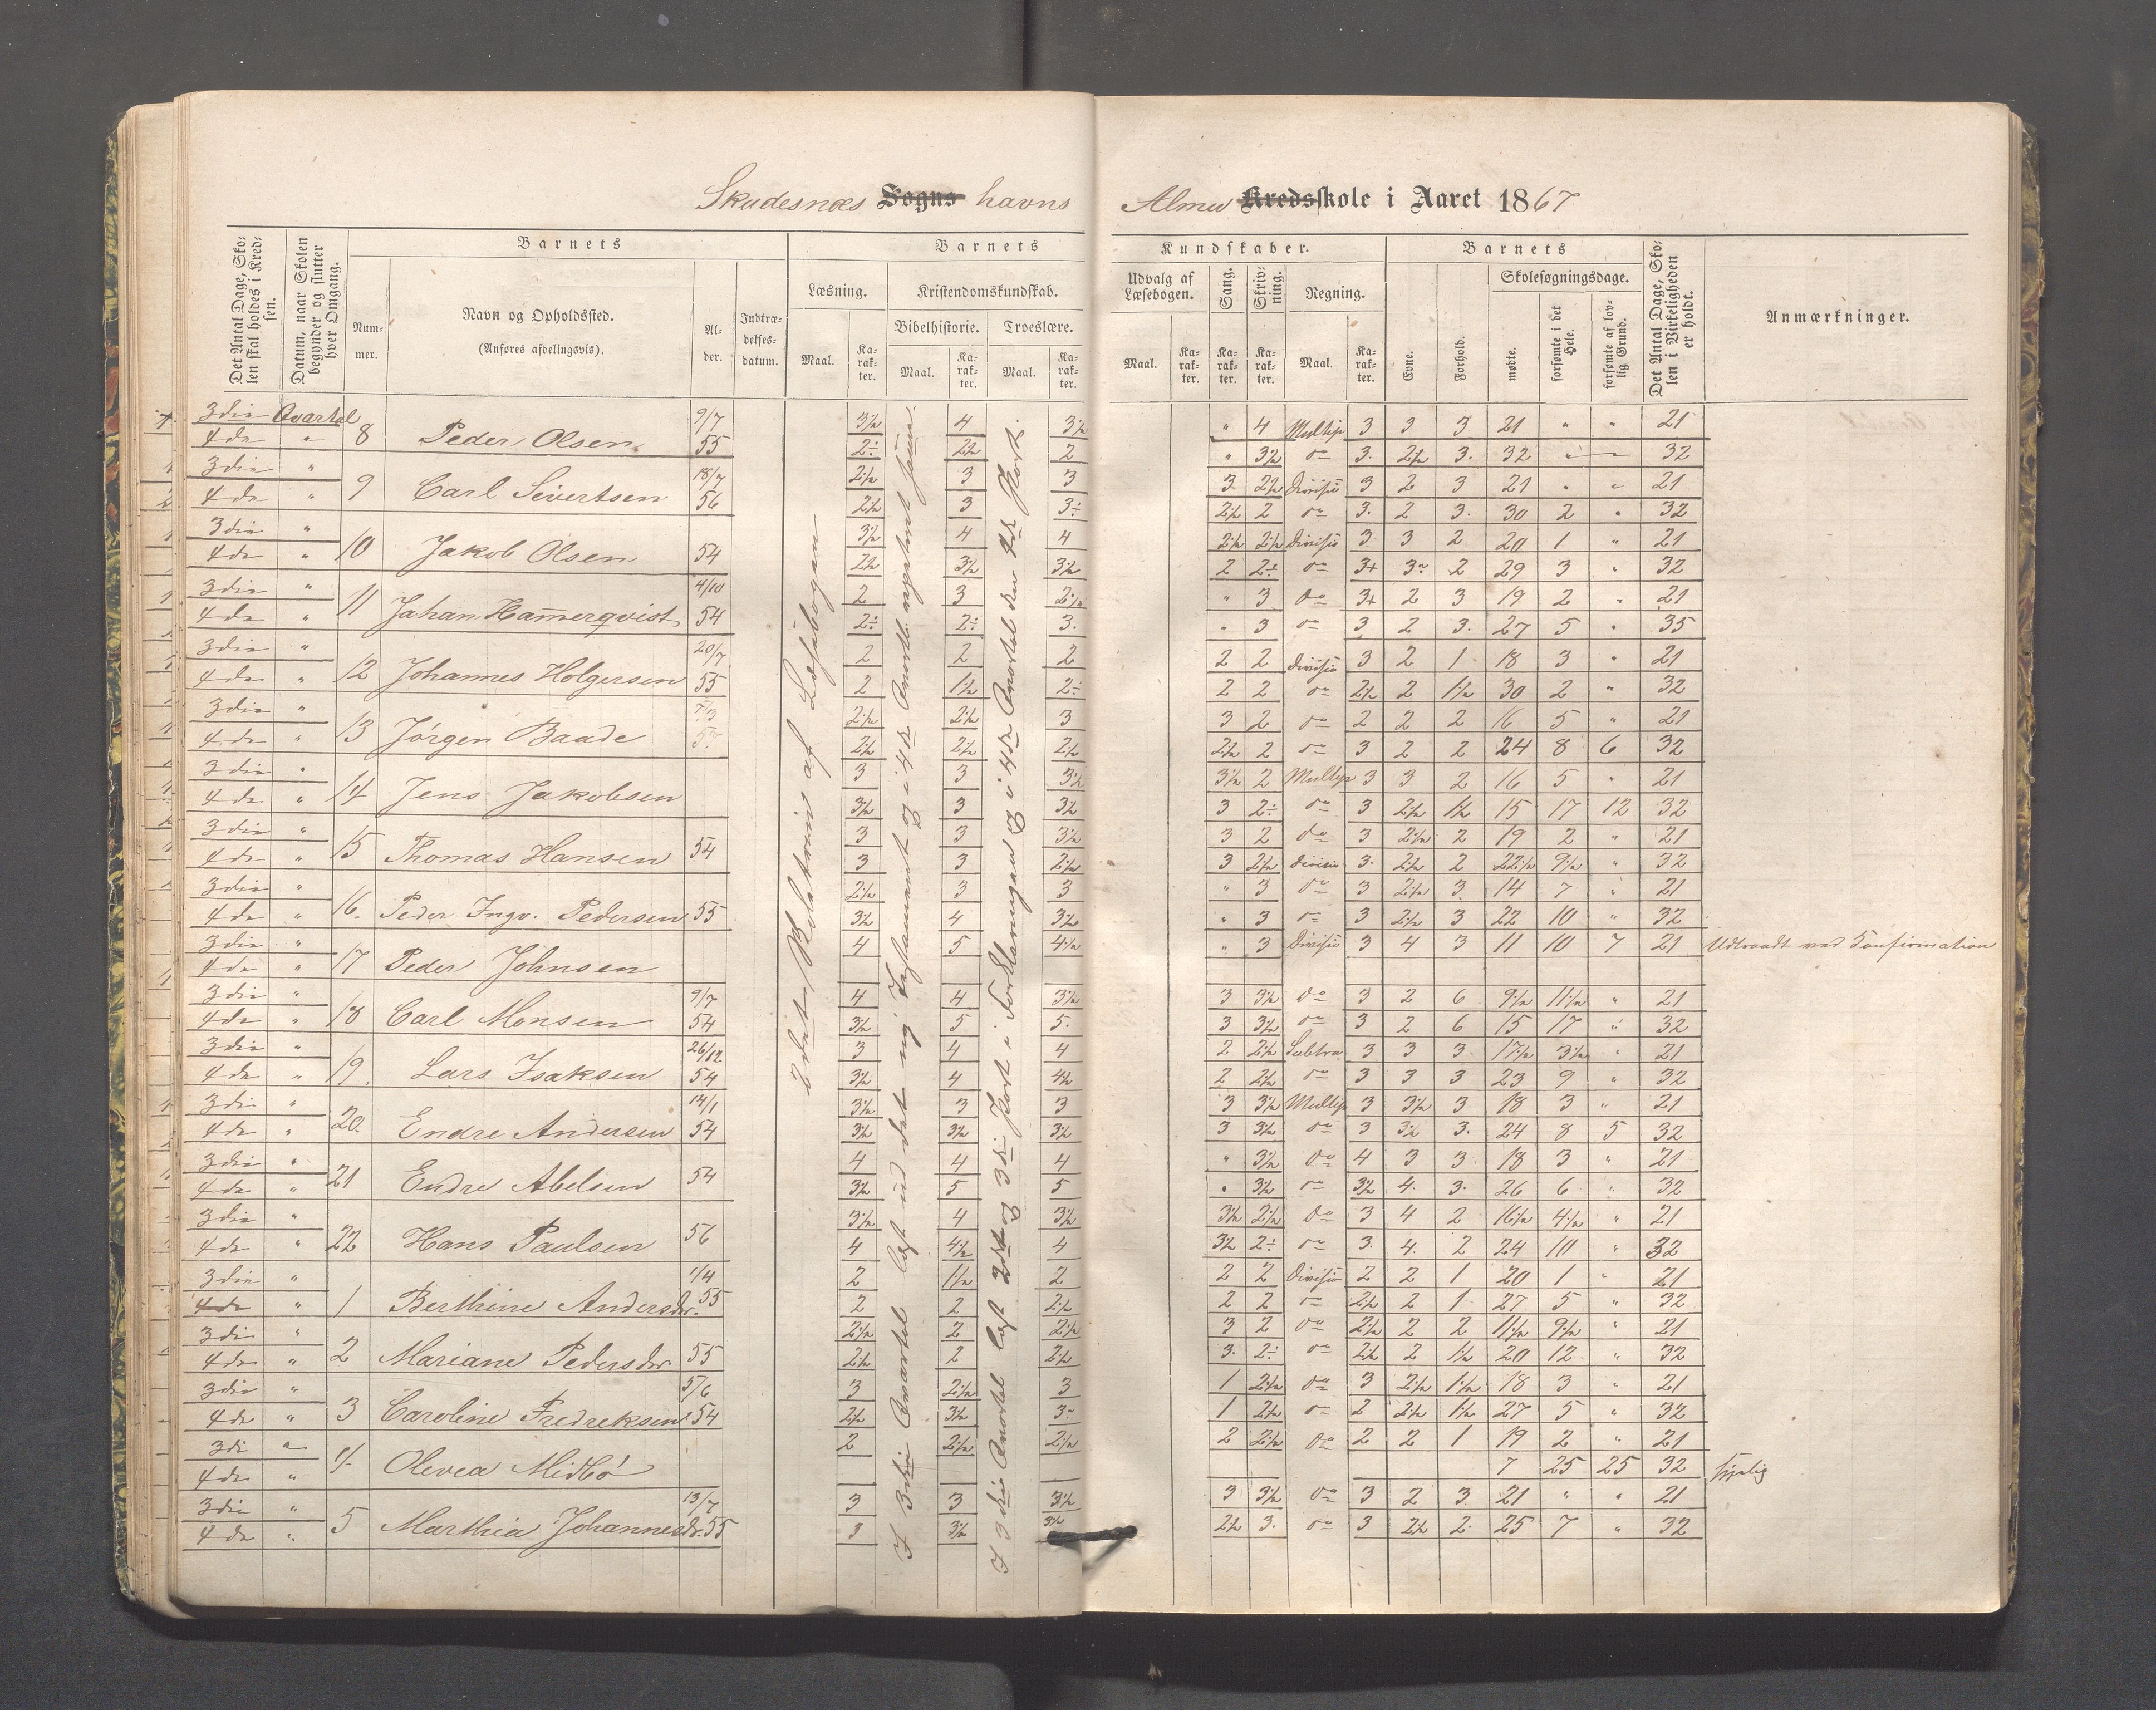 Skudesnæs Sogns havns Almeu Kredsskole i Aaret 1867
Det Antal Dage, Skolen skal holdes i Kredsen.
Datum, naar Skolen begynder og slutter hver Omgang.
Barnets
Nummer.
Navn og Opholdssted.
(Anføres afdelingsvis).
Alder.
Indtrædelsesdatum.
Barnets Kundskaber.
Læsning.
Maal. Karakter.
Kristendomskundskab.
Bibelhistorie. Troeslære.
Maal. Karakter. Maal. Karakter.
Udvalg af Læsebogen.
Maal. Karakter.
Sang.
Karakter.
Skrivning.
Karakter.
Regning.
Maal. Karakter.
Barnets
Evne. Forhold.
Skolesøgningsdage.
mødte. forsømte i det Hele. forsømte af lovlig Grund.
Det Antal Dage, Skolen i Virkeligheden er holdt.
Anmærkninger.
3die Qvartal 9/7 3½ 4 3½ " 4 Multip 3 3 3 21 " " 21
4de " 8 Peder Olsen 55 2÷ 2½ 2 " 3½ do 3. 2½ 3. 32 " " 32
3die " 18/7 2½ 3 3 3 2½ Divisio 3 2 3 21 " " 21
4de " 9 Carl Sivertsen 56 2½ 3 3÷ 2½ 2 do 3. 2 3. 30 2 " 32
3die " 3½ 4 4 2½ 2½ Divisio 3 3 2 20 1 " 21
4de " 10 Jakob Olsen 54 2½ 3½ 3½ 2 2÷ do 3+ 3 2 29 3 " 32
3die " 4/10 2 3 2½ " 3 do 3+ 2 3 19 2 " 21
4de " 11 Johan Hamerqvist 54 2÷ 2÷ 3. " 3 do 3 2 3. 27 5 " 35
3die " 20/7 2 2 2 2 2 Divisio 3 2 1 18 3 " 21
4de " 12 Johannes Holgersen 55 2 1½ 2÷ 2 2 do 2½ 2 1½ 30 2 " 32
3die " 7/3 2½ 2½ 3 3 2 do 2 2 2 16 5 " 21
4de " 13 Jørgen Baade 57 2½ 2½ 2½ 2½ 2 do 3 2 2 24 8 6 32
3die " 3 3 3½ 3½ 2 Multip 3 3 2 16 5 " 21
4de " 14 Jens Jakobsen 3½ 3 3½ 3 2÷ do 3 2½ 1½ 15 17 12 32
3die " 3 3 3½ 3 2 do 3 2½ 2 19 2 " 21
4de " 15 Thomas Hansen 54 3 3 2½ 3 2½ Divisio 3. 2½ 2 22½ 9½ " 32
3die " 2½ 3 3 " 3 do 3 2½ 3 14 7 " 21
4de " 16. Peder Ingv. Pedersen 55 3½ 4 3½ " 3 do 3 2½ 3 22 10 " 32
3die " 4 5 4½ " 3 Divisio 3 4 3 11 10 7 21 Udtraadt ved Konfirmation
4de " 17 Peder Johnsen
3die " 9/7 4 4 3½ 3 3½ do 3 2 6 9½ 11½ " 21
4de " 18 Carl Monsen 54 3½ 5 5. 3 3½ do 3 2 6 15 17 " 32
3die " 26/12 3 4 4 2 2½ Subtra 3 3 3 17½ 3½ " 21
4de " 19. Lars Isaksen 54 3½ 4 4½ 2 2½ do 3 3 3 23 9 " 32
3die " 14/1 3½ 3 3 3 3½ Multip 3 3½ 3 18 3 " 21
4de " 20. Endre Andersen 54 3½ 3½ 3½ 3 3½ do 3 3½ 3. 24 8 5 32
3die " 4 4 4 " 3½ do 4 3 3 18 3 " 21
4de " 21 Endre Abelsen 54 3½ 5 5 " 3½ do 3½ 4. 3. 26 6 " 32
3die " 3½ 4 3½ 3½ 2½ do 3 4 2 16½ 4½ " 21
4de " 22 Hans Paulsen 56 4 4½ 4 3½ 2÷ do 3. 4. 2 24 10 " 32
3die " 1/4 2 1½ 2 2 2 Divisio 2 2 1 20 1 " 21
4de " 1 Berthine Andersdr. 55 2 2 2½ 2 2 do 2½ 2 1 27 5 " 32
3die " 2½ 2 2½ 3 2 do 2½ 2 2 11½ 9½ " 21
4de " 2 Mariane Pedersdr 55 2½ 2 2½ 3. 2÷ do 2½ 2 1½ 20 12 " 32
3die " 5/6 3 2½ 3 1 2½ do 3 2½ 1½ 18 3 " 21
4de " 3 Caroline Fredreksen 54 2½ 3½ 3 1 2½ do 2 2½ 1½ 27 5 " 32
3di " 2 2½ 2½ 2 2½ do 2 2 1 19 2 " 21
4de " 4 Olevea Midbø 7 25 25 32
3die " 13/7 3 3 3½ 3 3½ do 3 2 3 21 " " 21
4de " 5 Marthea Johannesdr. 55 3 3½ 3½ 2½ 3. do 3 2½ 2 25 7 " 32
2det af Læsebogen
I 3die Qvartal læst ud det ny Testamente og i 4de Qvartal
I 3die Qvartal læst 2det og 3die Part i Forklaringen og i 4de Qvartal den 4de Part.